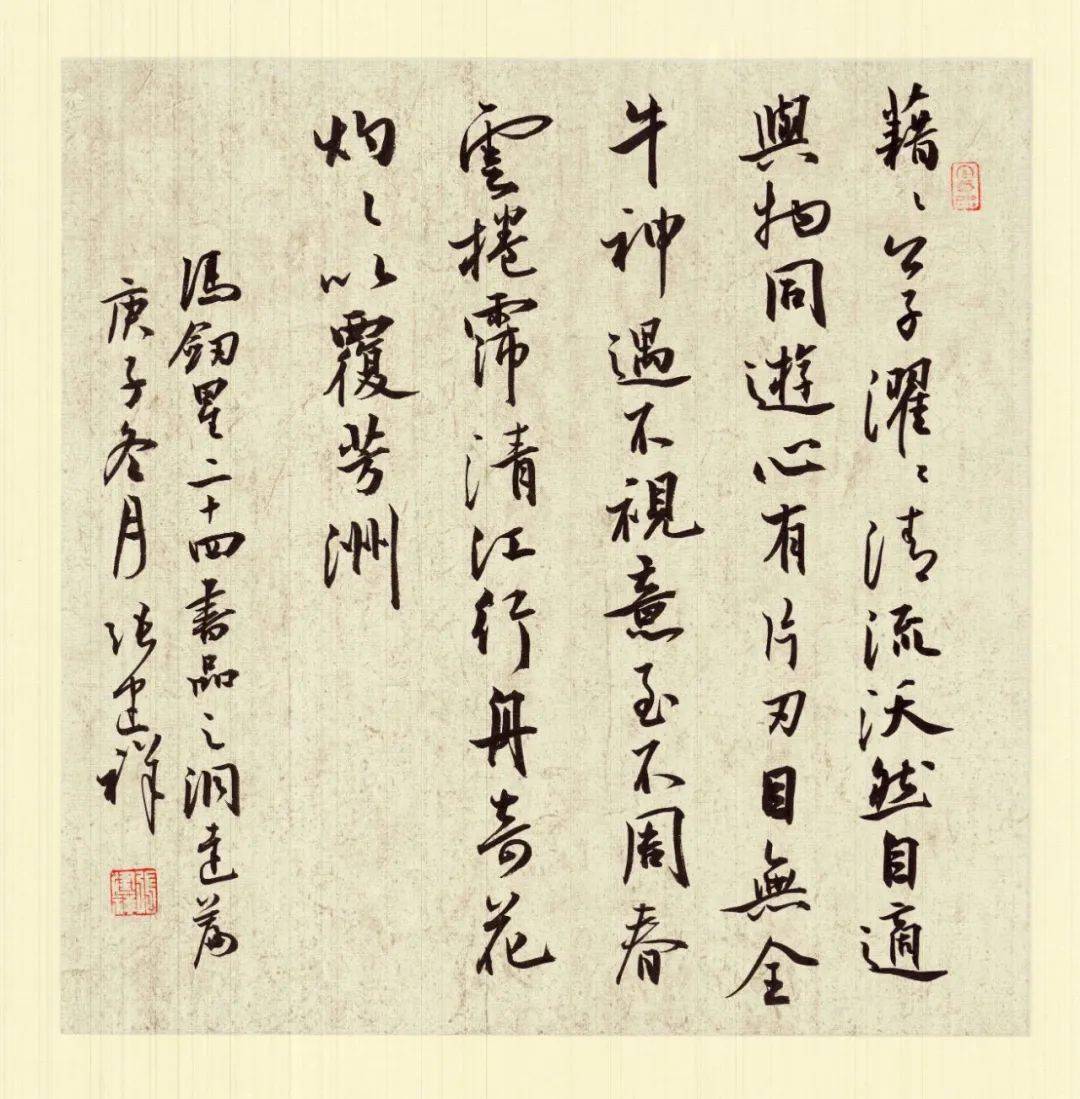 藉〻公子濯〻清流沃然自適
與物同遊心有片刃目無全
牛神遇不視意至不周春
雲捲霈清江行舟奇花
灼〻以覆芳洲
馮釼星二十四書品之洞達篇
庚子冬月張建祥